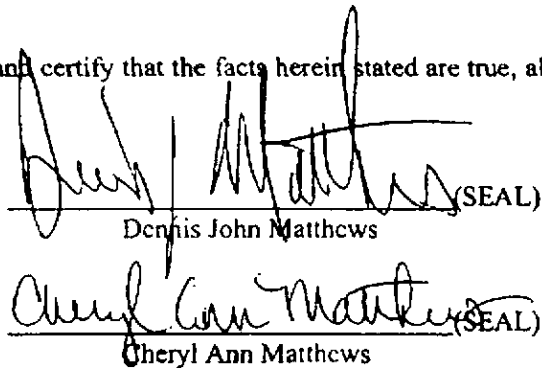 and certify that the facts herein stated are true, al
Dennis J Matthews (SEAL)
Dennis John Matthews
Cheryl Ann Matthews (SEAL)
Cheryl Ann Matthews